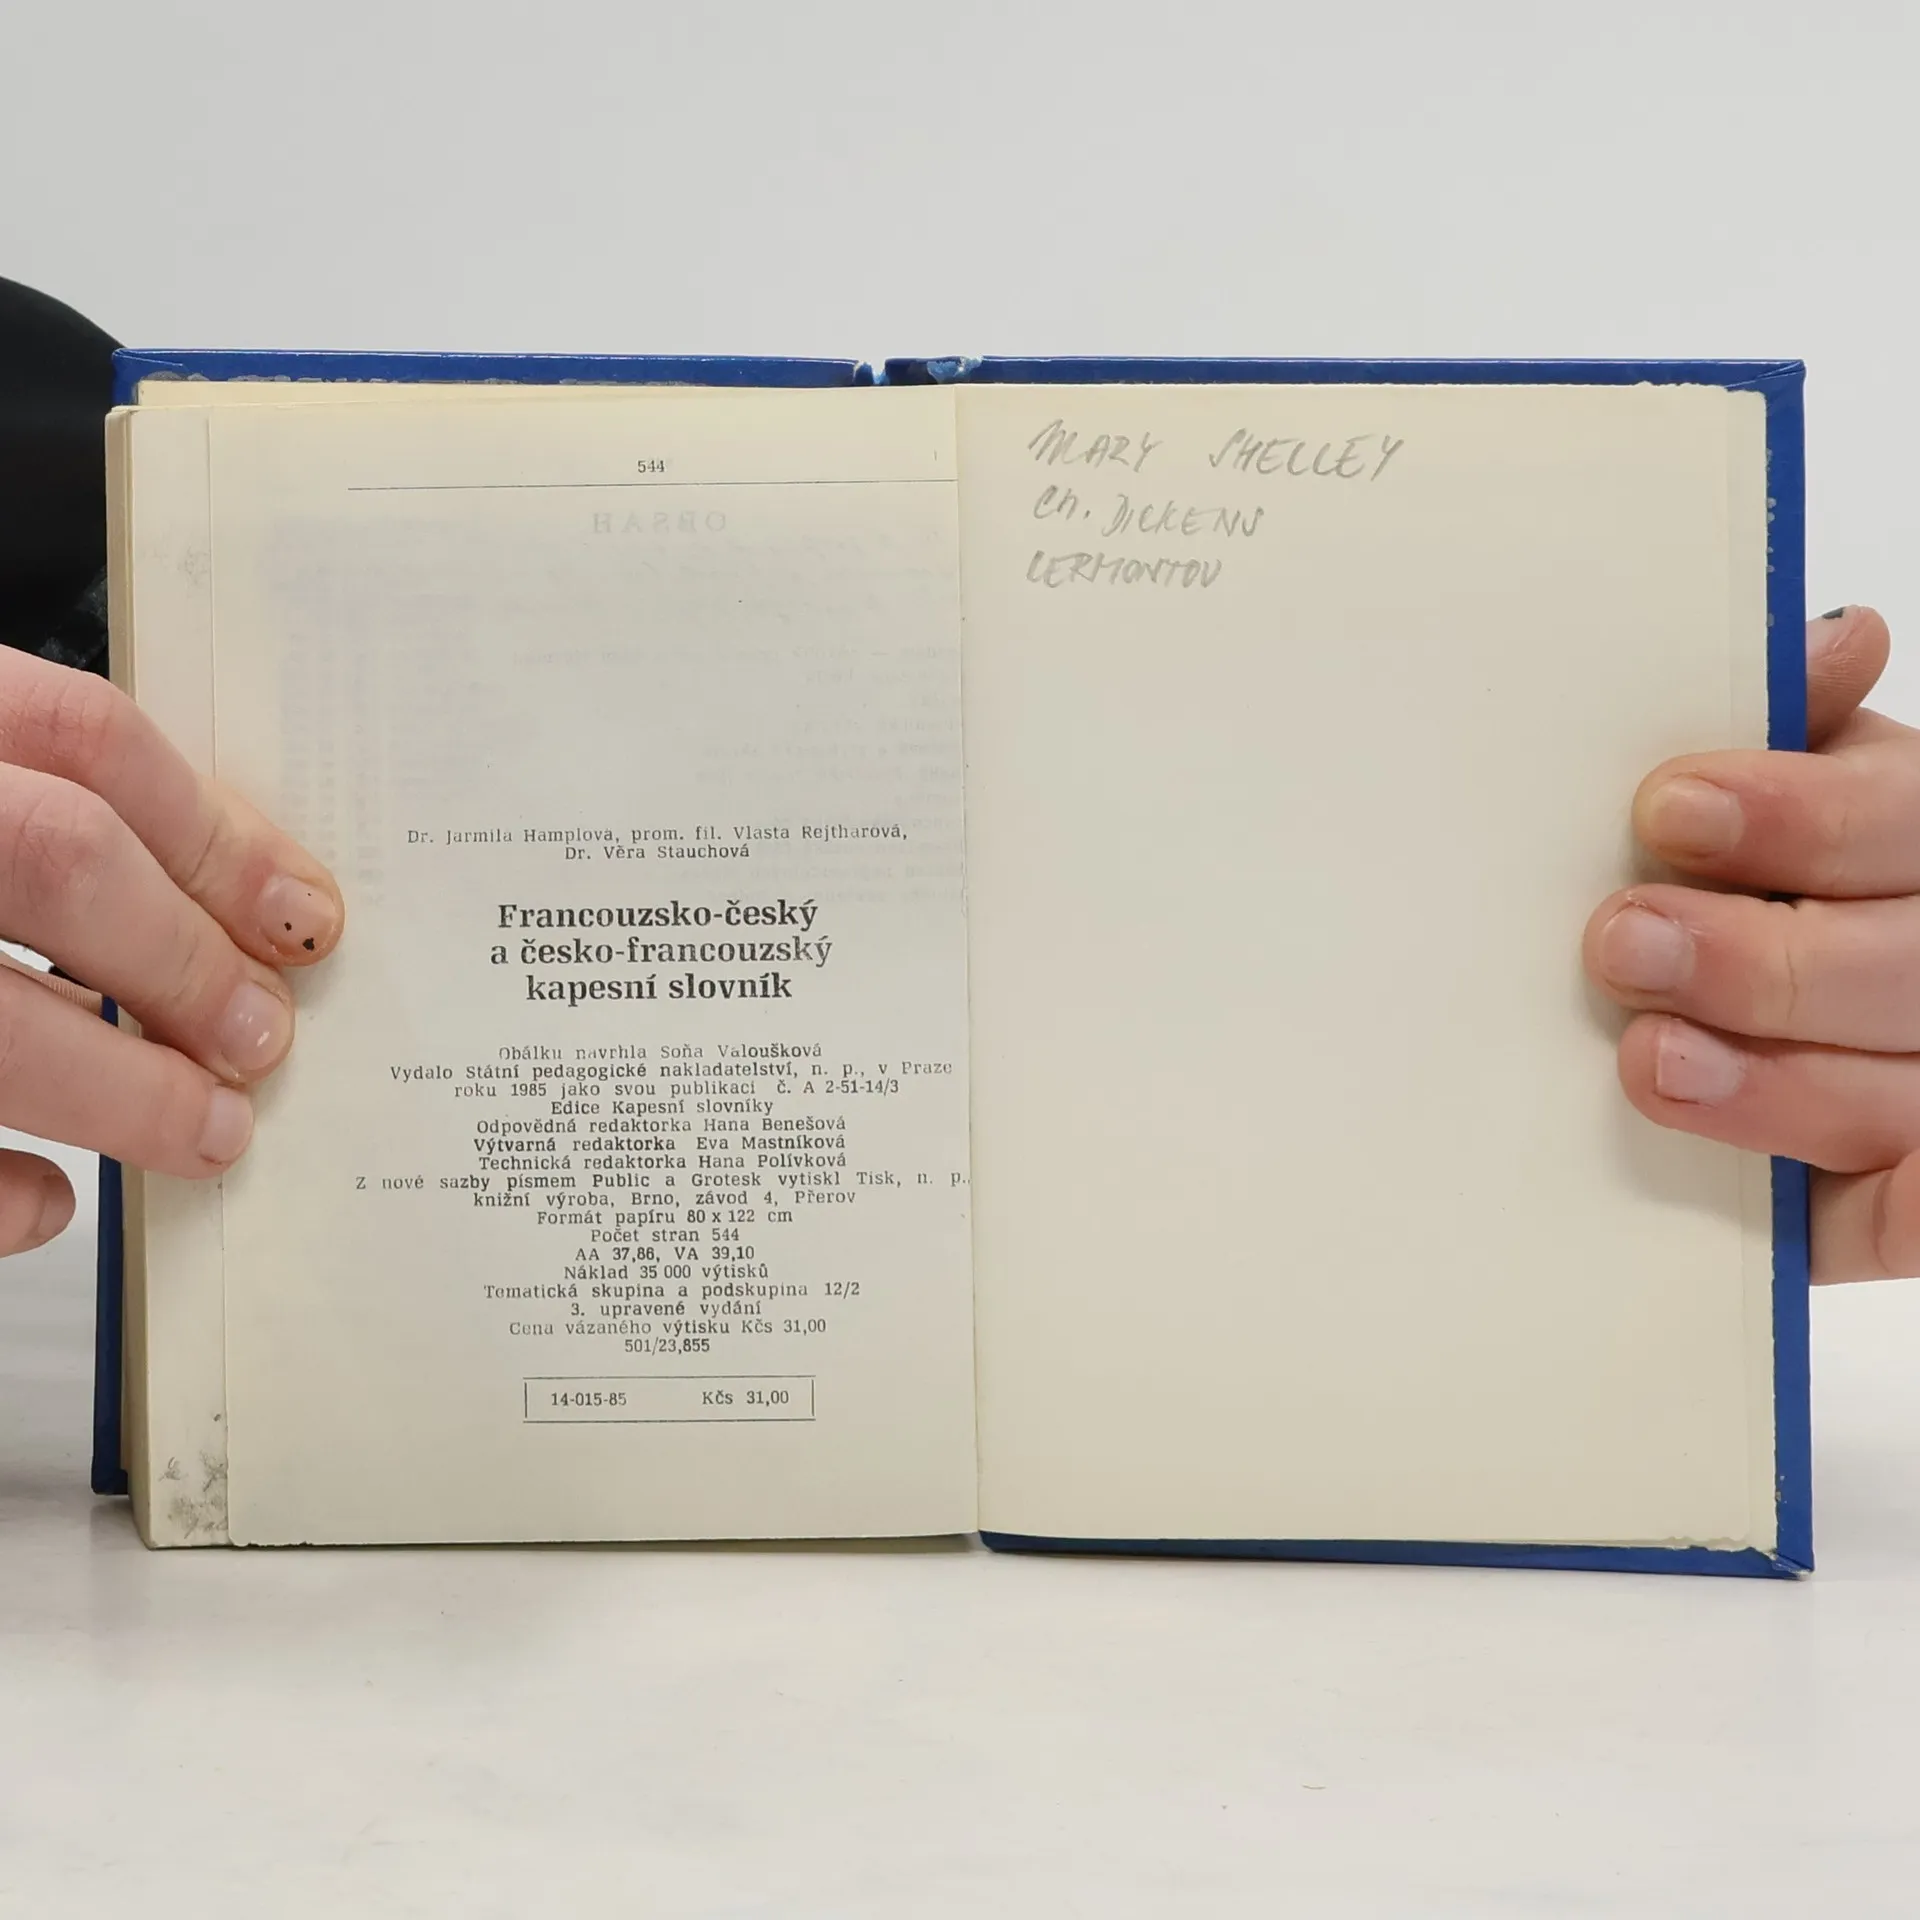 544
Dr. Jarmila Hamplová, prom. fil. Vlasta Rejtharová,
Dr. Věra Stauchová
Francouzsko-český
a česko-francouzský
kapesní slovník
Obálku navrhla Soňa Valoušková
Vydalo Státní pedagogické nakladatelství, n. p., v Praze
roku 1985 jako svou publikaci č. A 2-51-14/3
Edice Kapesní slovníky
Odpovědná redaktorka Hana Benešová
Výtvarná redaktorka Eva Mastníková
Technická redaktorka Hana Polívková
Z nové sazby písmem Public a Grotesk vytiskl Tisk, n. p.,
knižní výroba, Brno, závod 4, Přerov
Formát papíru 80 x 122 cm
Počet stran 544
AA 37,86, VA 39,10
Náklad 35 000 výtisků
Tematická skupina a podskupina 12/2
3. upravené vydání
Cena vázaného výtisku Kčs 31,00
501/23,855
14-015-85 Kčs 31,00
MARY SHELLEY
CH. DICKENS
LERMONTOV